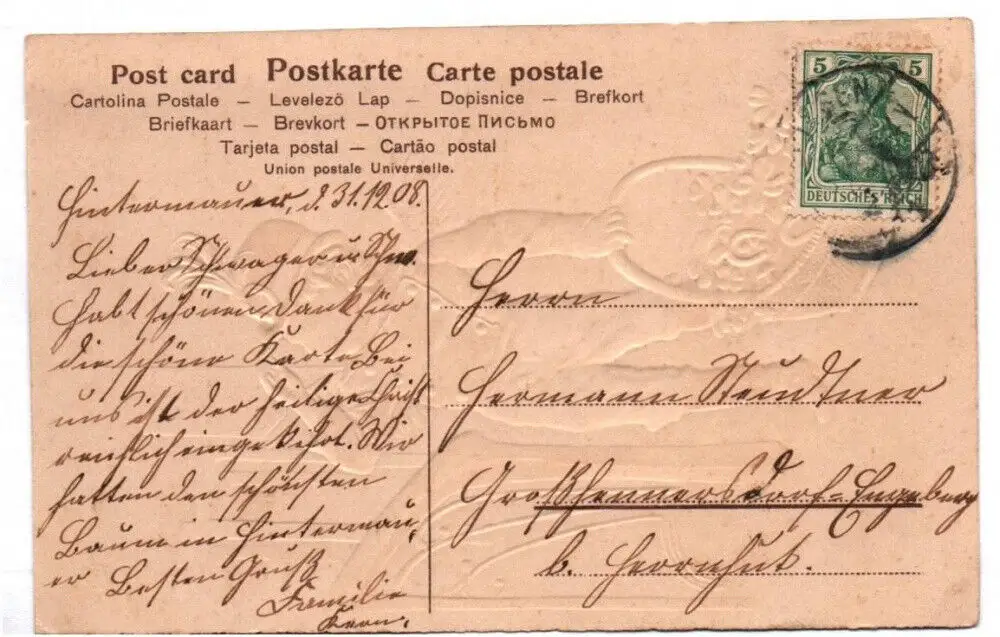 Post card Postkarte Carte postale
Cartolina Postale – Levelező Lap – Dopisnice – Brefkort
Briefkaart – Brevkort – ОТКРЫТОЕ ПИСЬМО
Tarjeta postal – Cartão postal
Union postale Universelle.
5 5
DEUTSCHES REICH
Hintermauer, d. 31.12.08.
Lieber Schwager u. Schw.
Habt schönen Dank für
die schöne Karte. Bei
uns ist der heilige Christ
reichlich eingekehrt. Wir
hatten den schönsten
Baum in Hintermau-
er Besten Gruß
Familie
Herrn
Hermann Steudtner
Großhennersdorf-
b. Herrnhut.